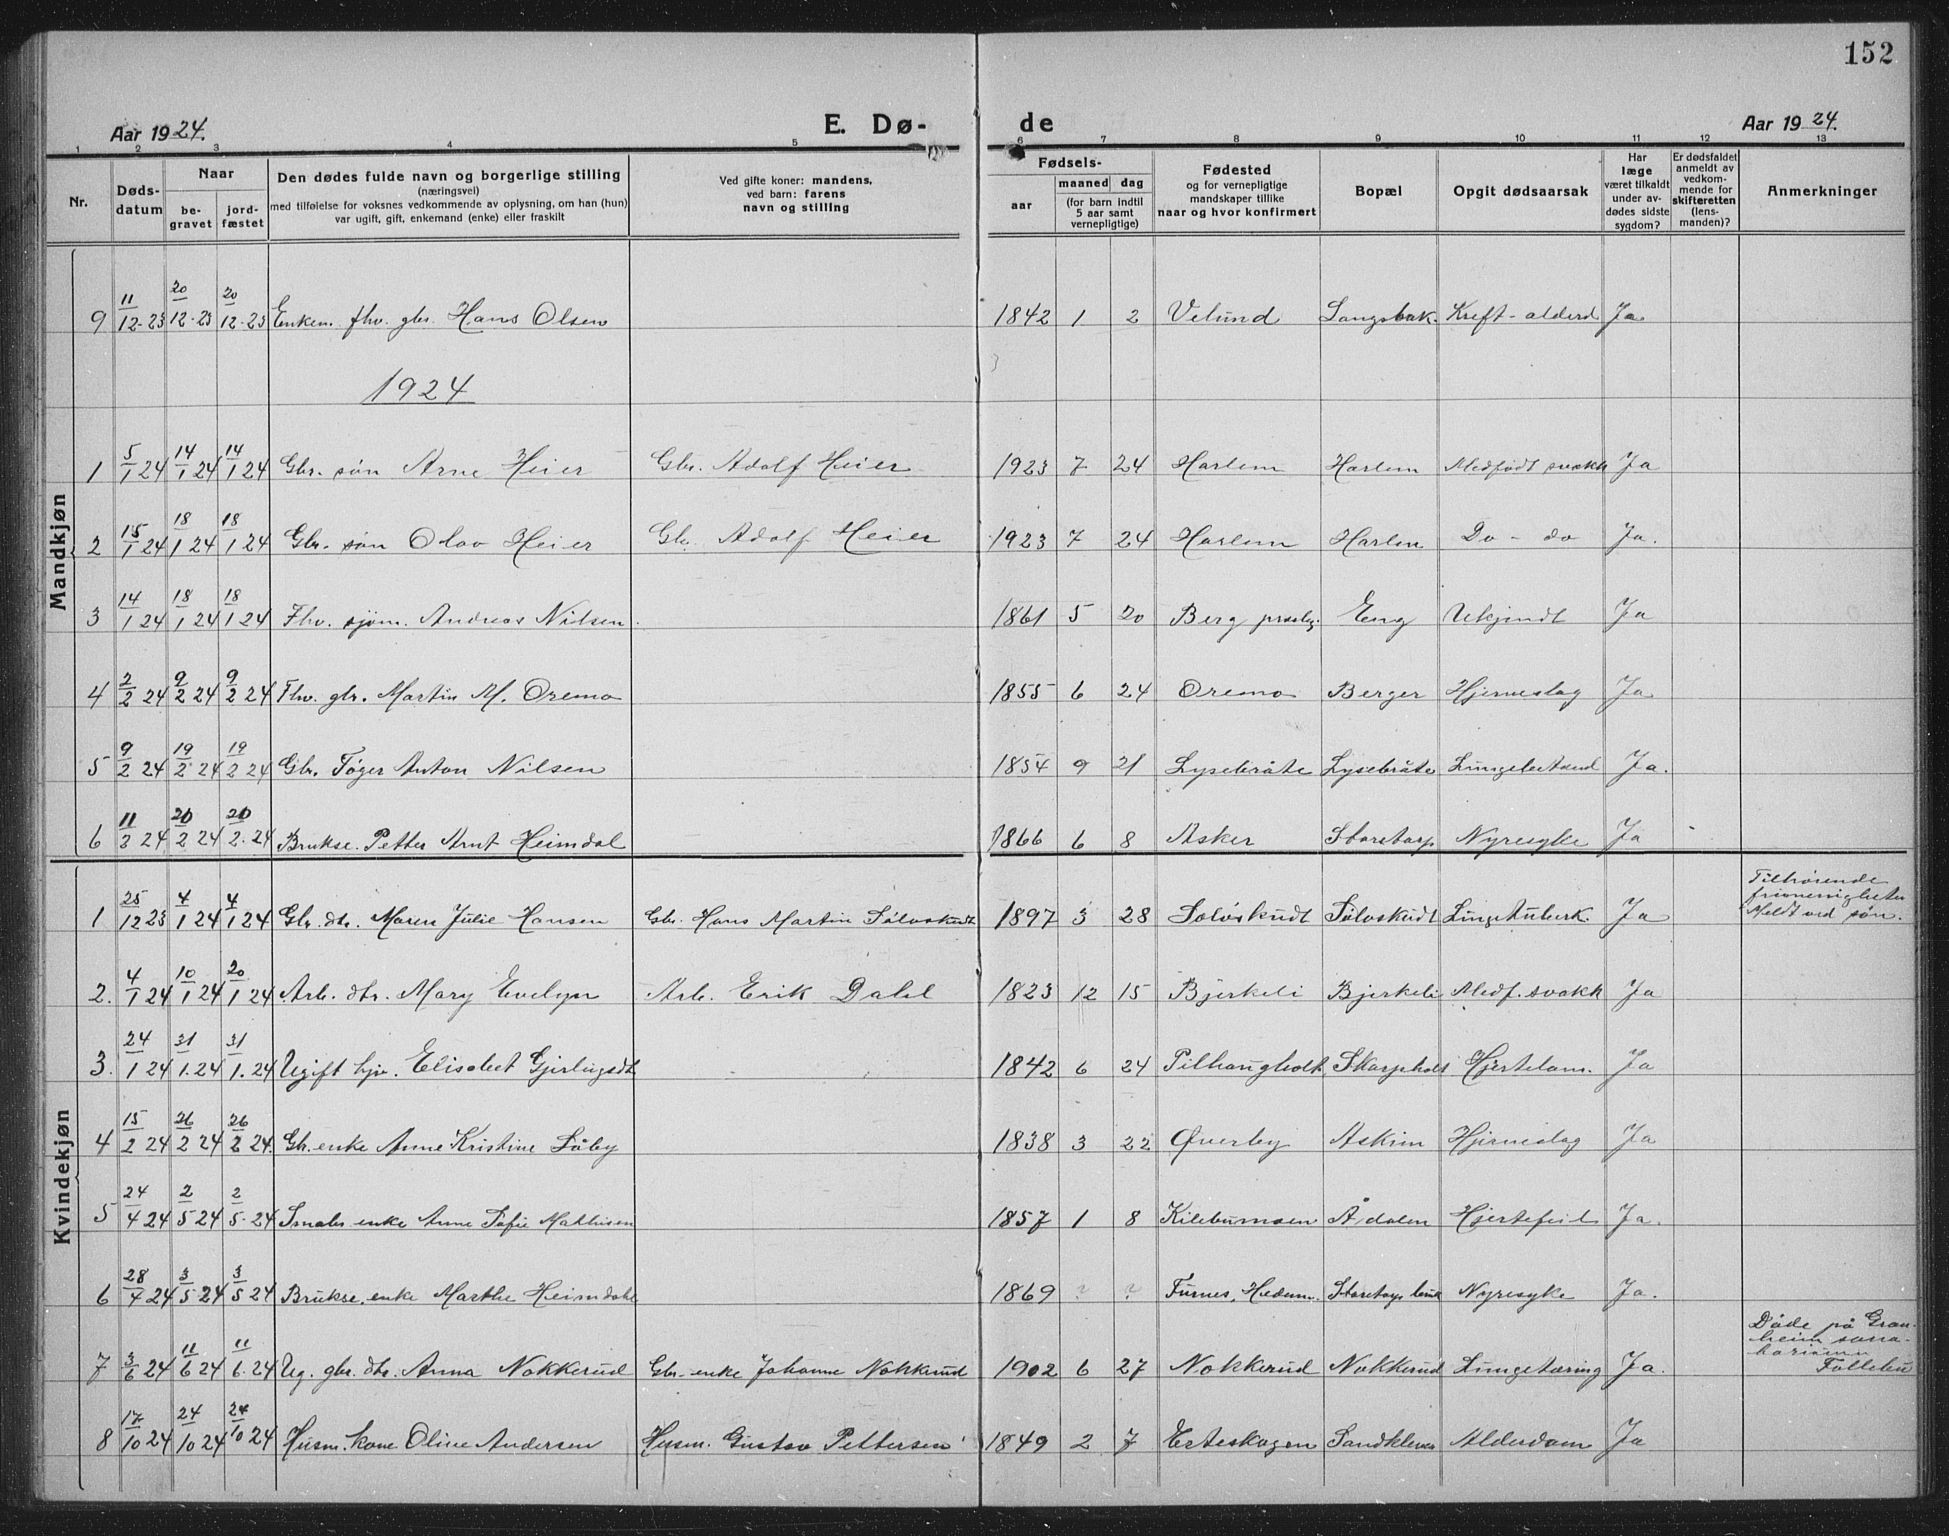 152
Aar 1924.
E. Dø-
de
Aar 1924.
1 2 3 4 5 6 7 8 9 10 11 12 13
Nr.
Døds-
datum
Naar
be-
gravet
jord-
fæstet
Den dødes fulde navn og borgerlige stilling
(næringsvei)
med tilføielse for voksnes vedkommende av oplysning, om han (hun)
var ugift, gift, enkemand (enke) eller fraskilt
Ved gifte koner: mandens,
ved barn: farens
navn og stilling
Fødsels-
aar
maaned dag
(for barn indtil
5 aar samt
vernepligtige)
Fødested
og for vernepligtige
mandskaper tillike
naar og hvor konfirmert
Bopæl
Opgit dødsaarsak
Har
læge
været tilkaldt
under av-
dødes sidste
sygdom?
Er dødsfaldet
anmeldt av
vedkom-
mende for
skifteretten
(lens-
manden)?
Anmerkninger
Mandkjøn
9 11/12-23 20/12-23 20/12-23 Enkem. fhv. gbr. Hans Olsen 1842 1 2 Velund Langsbak. Kreft-alderd Ja
1924
1 5/1 24 14/1 24 14/1 24 Gbr. søn Arne Heier Gbr. Adolf Heier 1923 7 24 Harlem Harlem Medfødt svakh Ja
2 15/1 24 18/1 24 18/1 24 Gbr. søn Olav Heier Gb. Adolf Heier 1923 7 24 Harlem Harlem Do - do Ja.
3 14/1 24 18/1 24 18/1 24 Fhv. sjøm. Andreas Nilsen. 1861 5 20 Berg præstg. Eng Ukjendt Ja
4 2/2 24 9/2 24 9/2 24 Fhv. gbr. Martin M. Oremo 1855 6 24 Oremo Berger Hjerneslag Ja
5 9/2 24 19/2 24 19/2 24 Gbr. Tøger Anton Nilsen 1854 9 21 Lysebråte Lysebråte Lungebetænd Ja.
6 11/2 24 20/2 24 20/2. 24 Brukse. Petter Arnt Heimdal 1866 6 8 Asker Storetorp Nyresyke Ja
Kvindekjøn
1 25/12 23 4/1 24 4/1 24 Gbr. dtr. Maren Julie Hansen Gbr. Hans Martin Sølvskudt 1897 3 28 Solvskudt Sølvskudt Lungetuberk. Ja Tilhørende
frimenigheten
Meldt ved søn.
2. 4/1 24 10/1 24 20/1 24 Arb. dtr. Mary Evelyn Arb. Erik Dahl 1823 12 15 Bjerkeli Bjerkeli Medf. svakh Ja
3. 24/1 24 31/1. 24 31/1. 24 Ugift Elisabet 1842 6 24 Pilhaugholt Skarpholt Hjertelam. Ja
4 15/2 24 26/2 24 26/2 24. Gb. enke Anne Kristine Løby 1838 3 22 Øverby Askim Hjerneslag Ja
5 24/4 24 2/5 24 2/5. 24 Smabr. enke Anne Sofie Mathisen 1857 1 8 Ådalen Hjertefeil Ja.
6 28/4 24 3/5 24 3/5 24 Brukse. enke Marthe Heimdahl 1869 ? ? Furnes, Hedem. Storetorp bruk Nyresyke Ja.
7 3/6 24 11/6 24 11/6. 24 Ug. gbr. dtr. Anna Nokkerud Gbr. enke Johanne Nokkerud 1902 6 27 Nokkerud Nokkerud Lungetæring Ja. Døde på Gran-
heim sana-
torium
Follebu
8 17/10 24 24/10 24 24/10 24 Husm. kone Oline Andersen Husm. Gustav Pettersen 1849 2 7 Erteskogen Sandkleven Alderdom Ja